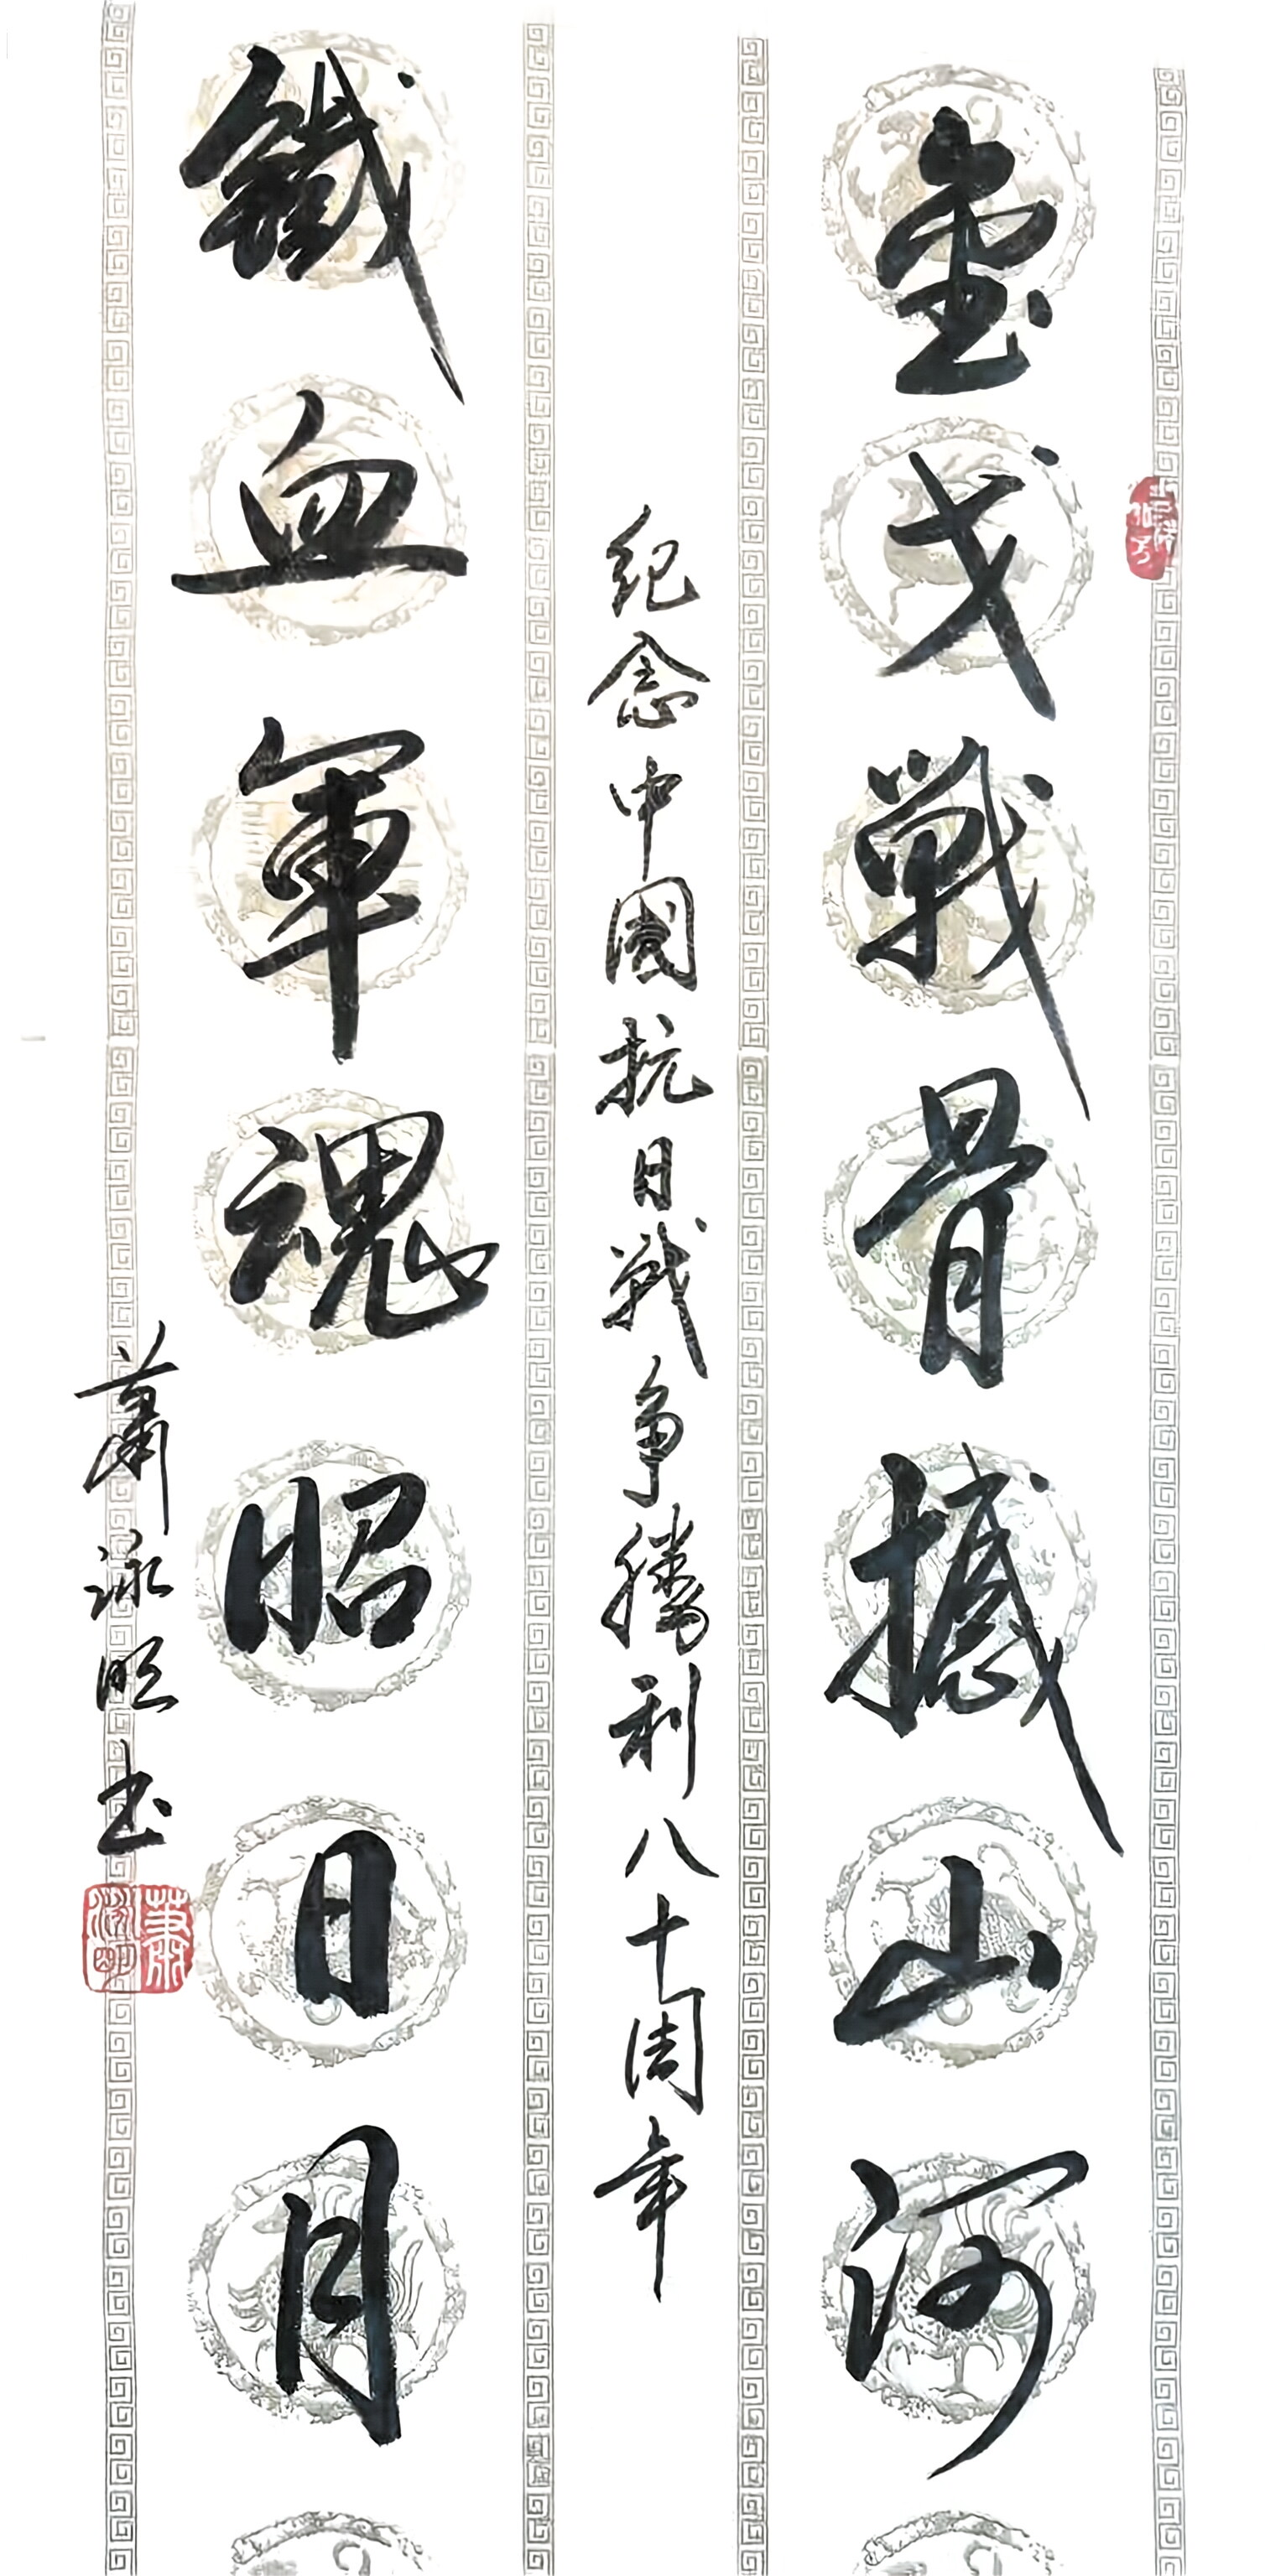 金戈戰骨撼山河
紀念中國抗日戰争勝利八十周年
鐵血軍魂昭日月
蕭泳明书
蕭泳明